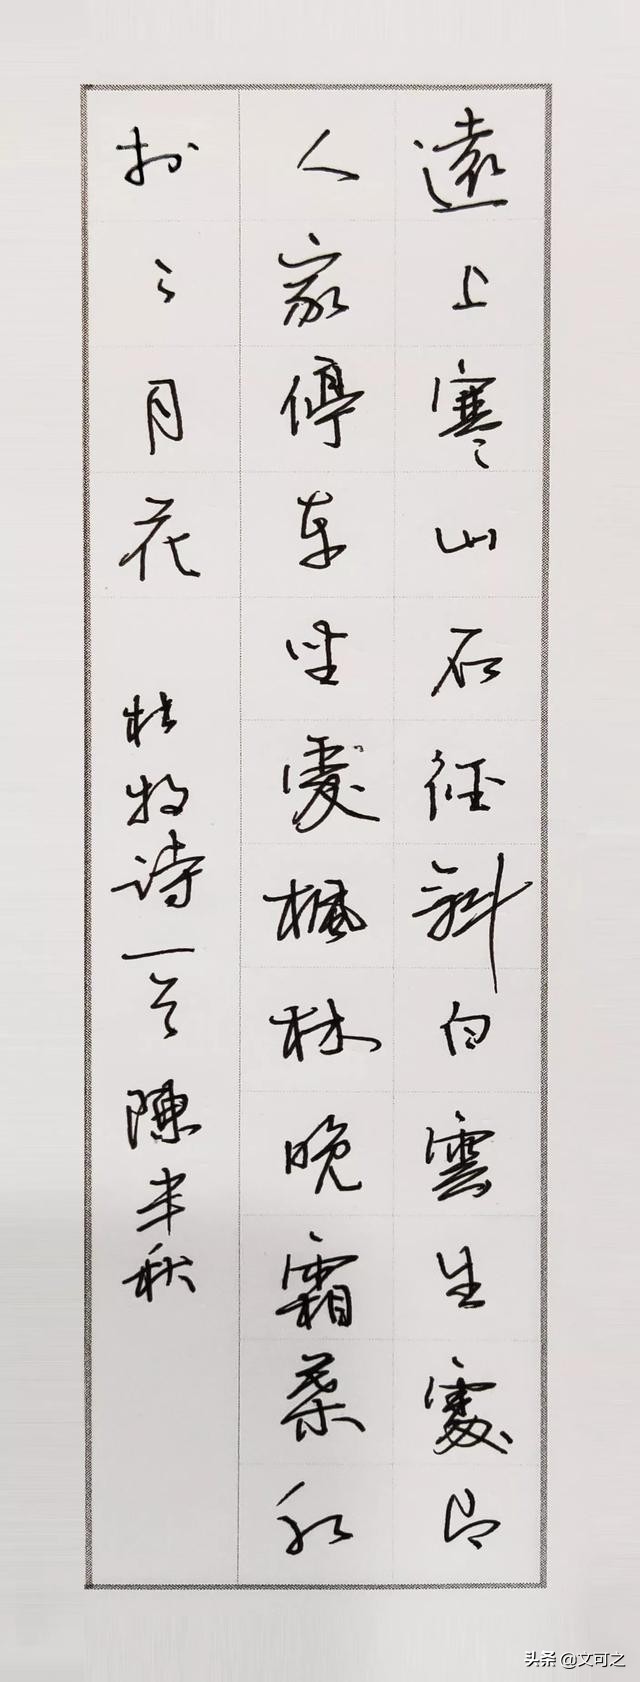 遠上寒山石徑斜白雲生處有
人家停車坐愛楓林晚霜葉紅
於二月花 杜牧詩一首 陳半秋
头条 @文可之